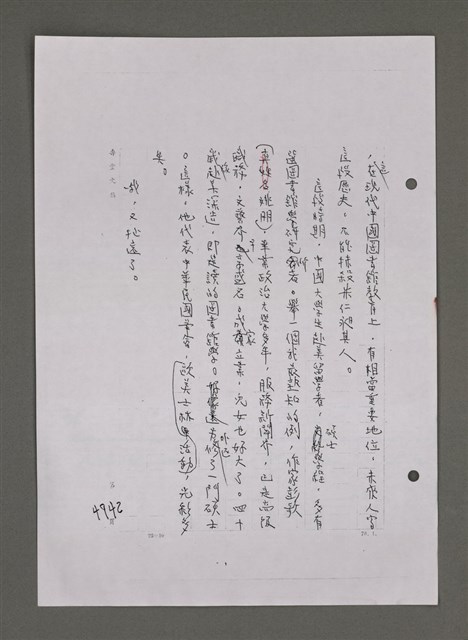 ，在現代中國圖書館教育上，有相當重要地位，未來人寫
這
這段歷史，不能抹殺朱仁昶其人。
這段時期，中國大學生赴美留學者，碩士學程，多有
選圖書館學課者。舉一個我最熟知的例，作家彭歌
（真姓名姚朋），卒業政治大學多年，服務新聞界，已是高級
職務，文藝本享盛名。成家立業，兒女也好大了。四十
歲赴美深造，即是讀的圖書館學。修了一門碩士
。這樣，他代表中華民國筆會，歐美士林活動，光彩多
矣。
哦，又扯遠了。
4942